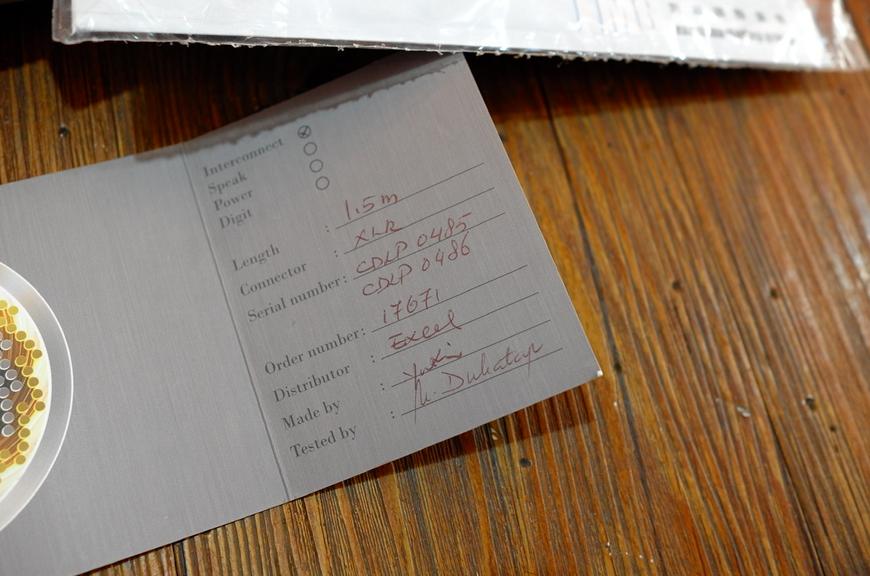 Interconnect
Speak
Power
Digit
Length : 1.5m
Connector : XLR
Serial number: CDLP 0485
CDLP 0486
Order number: 17671
Distributor : Excel
Made by : Yuki
Tested by :